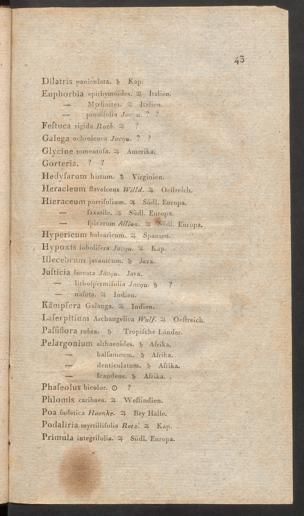 43
Dilatris paniculata. ♄ Kap.
Euphorbia epithymoides. ♃ Italien.
— Myrsinites. ♃ Italien.
— pinifolia Jacqu. ? ?
Festuca rigida Roth. ♃ ?
Galega ochroleuca Jacqu. ? ?
Glycine tomentosa. ♃ Amerika.
Gorteria. ? ?
Hedysarum hirtum. ♄ Virginien.
Heracleum flavescens Willd. ♃ Oestreich.
Hieraceum porrifolium. ♃ Südl. Europa.
— saxatile. ♃ Südl. Europa.
— spicatum Allion. ♃ Südl. Europa.
Hypericum balearicum. ♃ Spanien.
Hypoxis sobolifera Jacqu. ♃ Kap.
Illecebrum javanicum. ♄ Java.
Justicia Jacqu. Java.
— lithospermifolia Jacqu. ♄ ?
— nasuta. ♃ Indien.
Kämpfera Galanga. ♃ Indien.
Laserpitium Archangelica Wulf. ♃ Oestreich.
Passiflora rubra. ♄ Tropische Länder.
Pelargonium althaeoides. ♄ Afrika.
— balsameum. ♄ Afrika.
— denticulatum. ♄ Afrika.
— scandens. ♄ Afrika.
Phaseolus bicolor. ☉ ?
Phlomis caribaea. ♃ Westindien.
Poa sudetica Haenke. ♃ Bey Halle.
Podaliria myrtillifolia Retz. ♃ Kap.
Primula integrifolia. ♃ Südl. Europa.